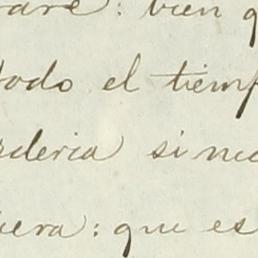 rare: bien q
todo el temp
rderia si no
iera: que es